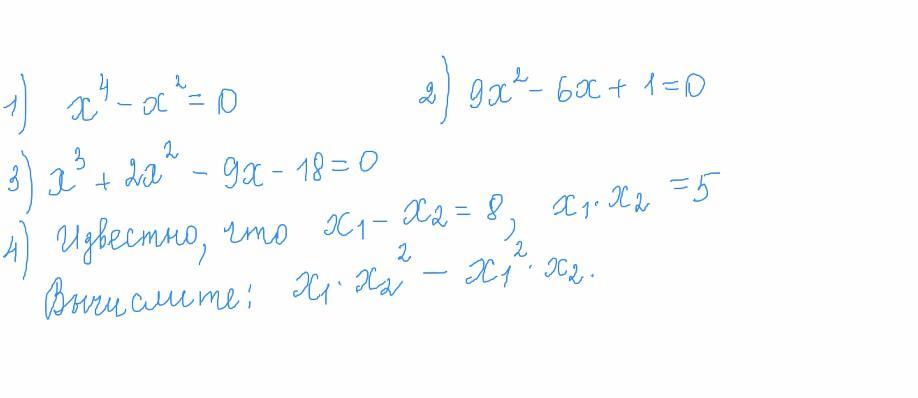 1) x⁴ - x² = 0 2) 9x² - 6x + 1 = 0
3) x³ + 2x² - 9x - 18 = 0
4) Известно, что x₁ - x₂ = 8, x₁ · x₂ = 5
Вычислите: x₁ · x₂² - x₁² · x₂.